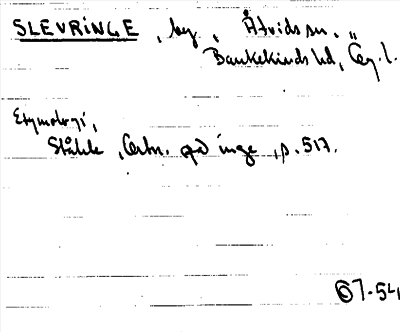 SLEVRINGE, by, Åtvids sn.,
Bankekinds hd, Ög. l.
Etymologi,
Ståhle, Ortn. på inge, p. 517.
67.54